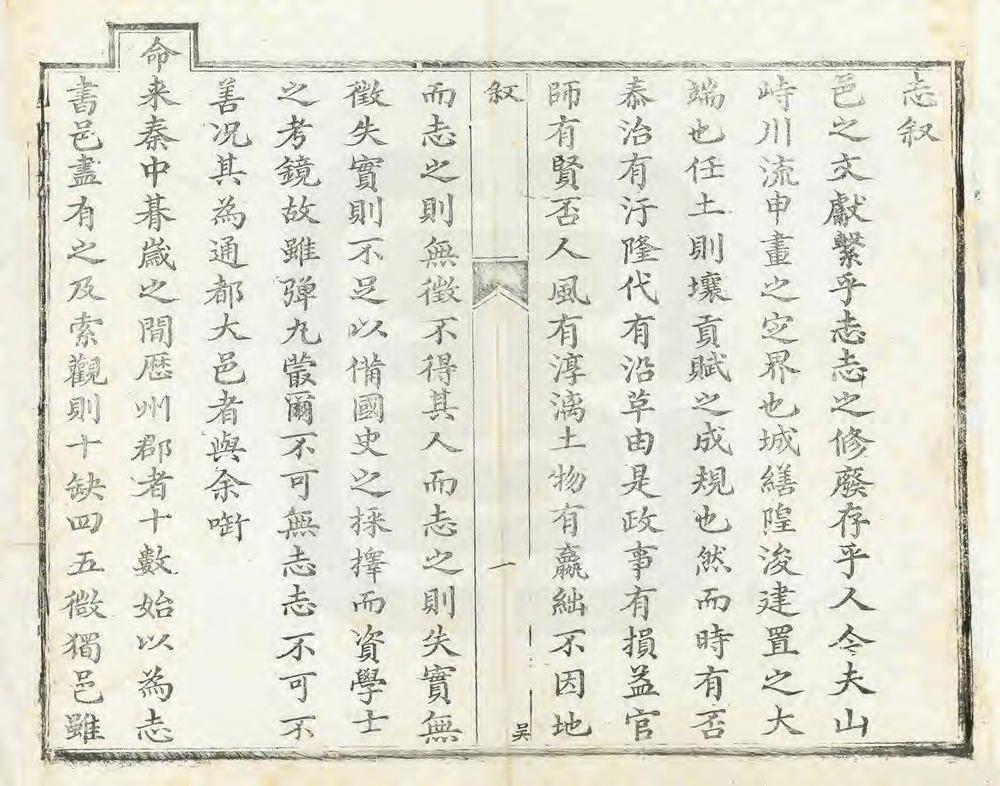 志叙
邑之文獻繫乎志志之修廢存乎人今夫山
峙川流申畫之定界也城繕隍浚建置之大
端也任土則壤貢賦之成規也然而時有否
泰治有汙隆代有沿革由是政事有損益官
師有賢否人風有淳漓土物有嬴絀不因地
叙
一
吴
而志之則無徵不得其人而志之則失實無
徵失實則不足以備國史之採擇而資學士
之考鏡故雖彈丸蕞爾不可無志志不可不
善况其為通都大邑者與余啣
命
来秦中朞歲之間歴州郡者十數始以為志
書邑盡有之及索觀則十缺四五微獨邑雖